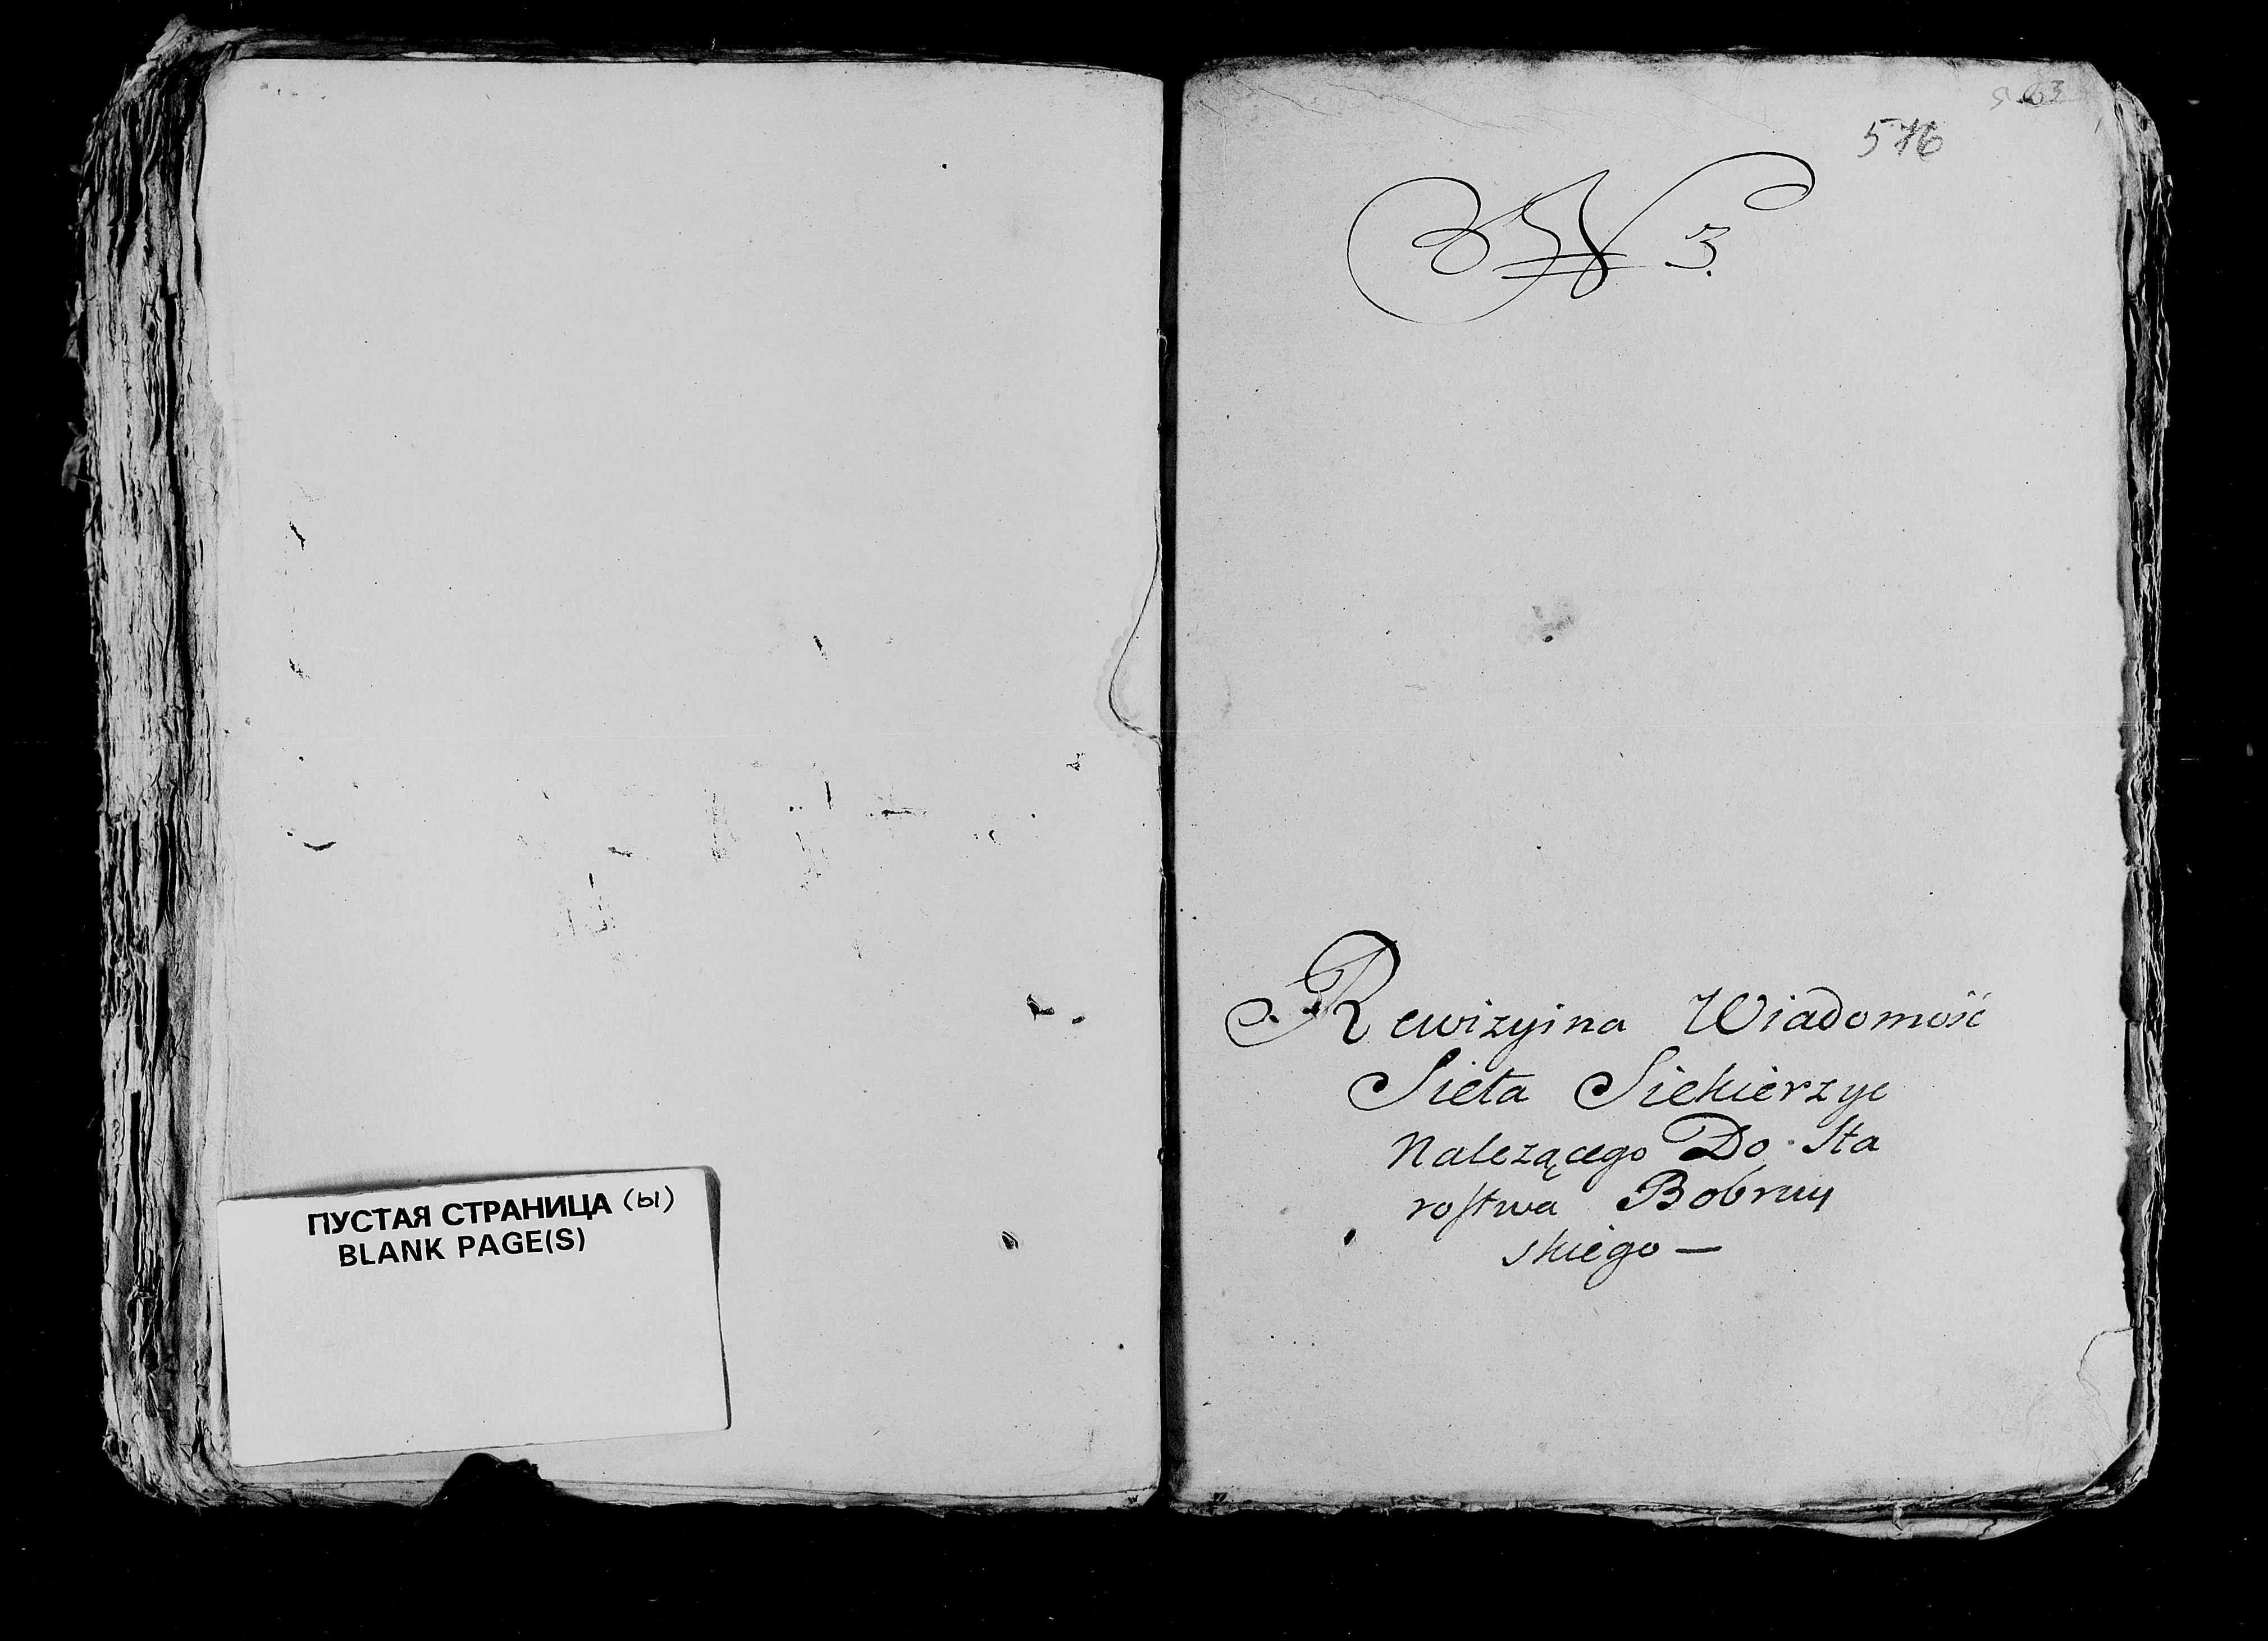 ПУСТАЯ СТРАНИЦА (Ы)
BLANK PAGE(S)
576
N 3.
Rewizyina Wiadomość
Sieła Siekierzyc
Nalezącego Do Sta
rostwa Bobruy
skiego —